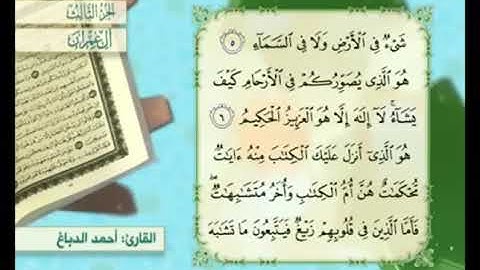 الجزء الثالث
آل عمران
شَىْءٌ فِى ٱلْأَرْضِ وَلَا فِى ٱلسَّمَآءِ ٥
هُوَ ٱلَّذِى يُصَوِّرُكُمْ فِى ٱلْأَرْحَامِ كَيْفَ
يَشَآءُ ۚ لَآ إِلَٰهَ إِلَّا هُوَ ٱلْعَزِيزُ ٱلْحَكِيمُ ٦
هُوَ ٱلَّذِىٓ أَنزَلَ عَلَيْكَ ٱلْكِتَٰبَ مِنْهُ ءَايَٰتٌ
مُّحْكَمَٰتٌ هُنَّ أُمُّ ٱلْكِتَٰبِ وَأُخَرُ مُتَشَٰبِهَٰتٌ ۖ
فَأَمَّا ٱلَّذِينَ فِى قُلُوبِهِمْ زَيْغٌ فَيَتَّبِعُونَ مَا تَشَٰبَهَ
القارئ: أحمد الدباغ